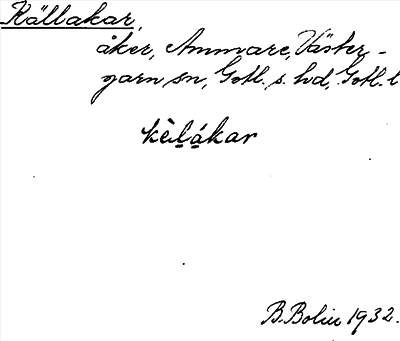 Källakar,
åker, Ammare, Väster-
garn sn, Gotl. s. hd, Gotl. l
kèlákar
B. Bolin 1932.